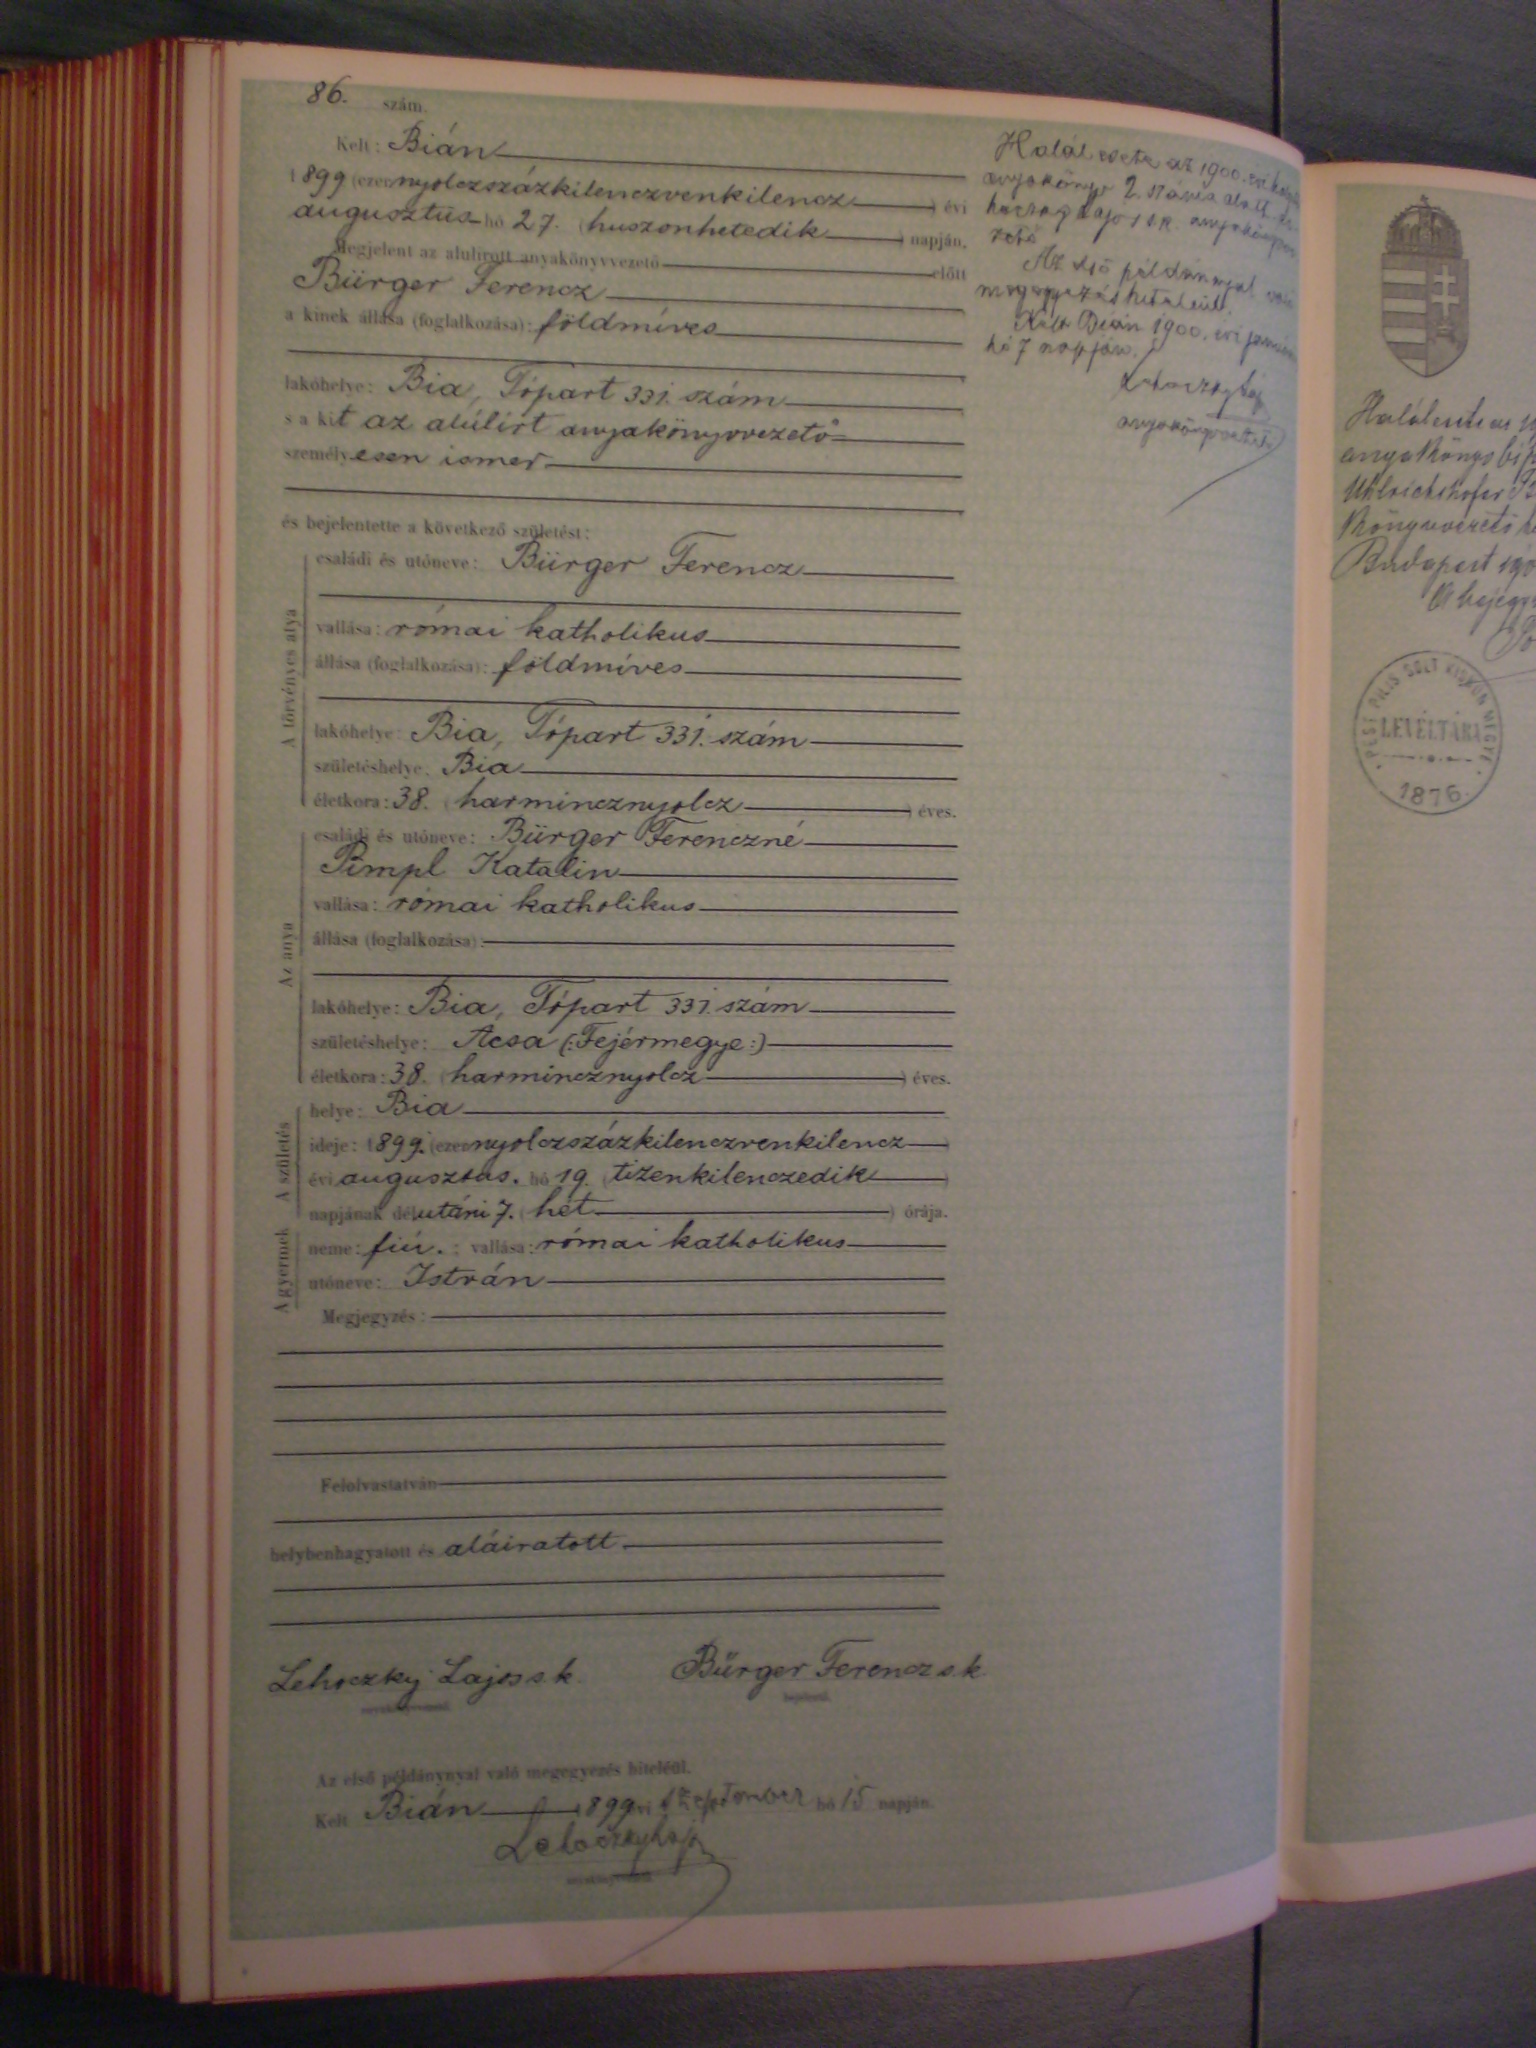 86. szám.
Kelt: Bián
1899 (ezer nyolczszázkilenczvenkilencz) évi
augusztus hó 27. (huszonhetedik) napján.
Megjelent az alulirott anyakönyvvezető előtt
Bürger Ferencz
a kinek állása (foglalkozása): földmíves
lakóhelye: Bia, Tópart 331. szám
s a kit az alúlírt anyakönyvvezető
személyesen ismer
és bejelentette a következő születést:
A törvényes atya
családi és utóneve: Bürger Ferencz
vallása: római katholikus
állása (foglalkozása): földmíves
lakóhelye: Bia, Tópart 331. szám
születéshelye: Bia
életkora: 38. (harmincznyolcz) éves.
Az anya
családi és utóneve: Bürger Ferenczné
Pimpl Katalin
vallása: római katholikus
állása (foglalkozása):
lakóhelye: Bia, Tópart 331. szám
születéshelye: Acsa (:Fejérmegye:)
életkora: 38. (harmincznyolcz) éves.
A születés
helye: Bia
ideje: 1899. (ezer nyolczszázkilenczvenkilencz)
évi augusztus. hó 19. (tizenkilenczedik)
napjának délutáni 7. (hét) órája.
A gyermek
neme: fiú. ; vallása: római katholikus
utóneve: István
Megjegyzés:
Felolvastatván
helybenhagyatott és aláiratott
Lehoczky Lajos s.k. Bürger Ferencz s.k.
anyakönyvvezető. bejelentő.
Az első példánynyal való megegyezés hiteléül.
Kelt Bián 1899 évi szeptember hó 15 napján.
Lehoczky Lajos
anyakönyvvezető.
Halál esete az 1900. évi
anyakönyv 2. száma alatt
Lajos s.k. anyakönyvvezető
Az első példánnyal való
megegyezés hiteléül.
Kelt Bián 1900. évi január
hó 7 napján.
Lehoczky Laj
anyakönyvvezető
Halálesete az
anyakönyv
Budapest
PEST PILIS SOLT KISKUN MEGYE
LEVÉLTÁRA
1876.